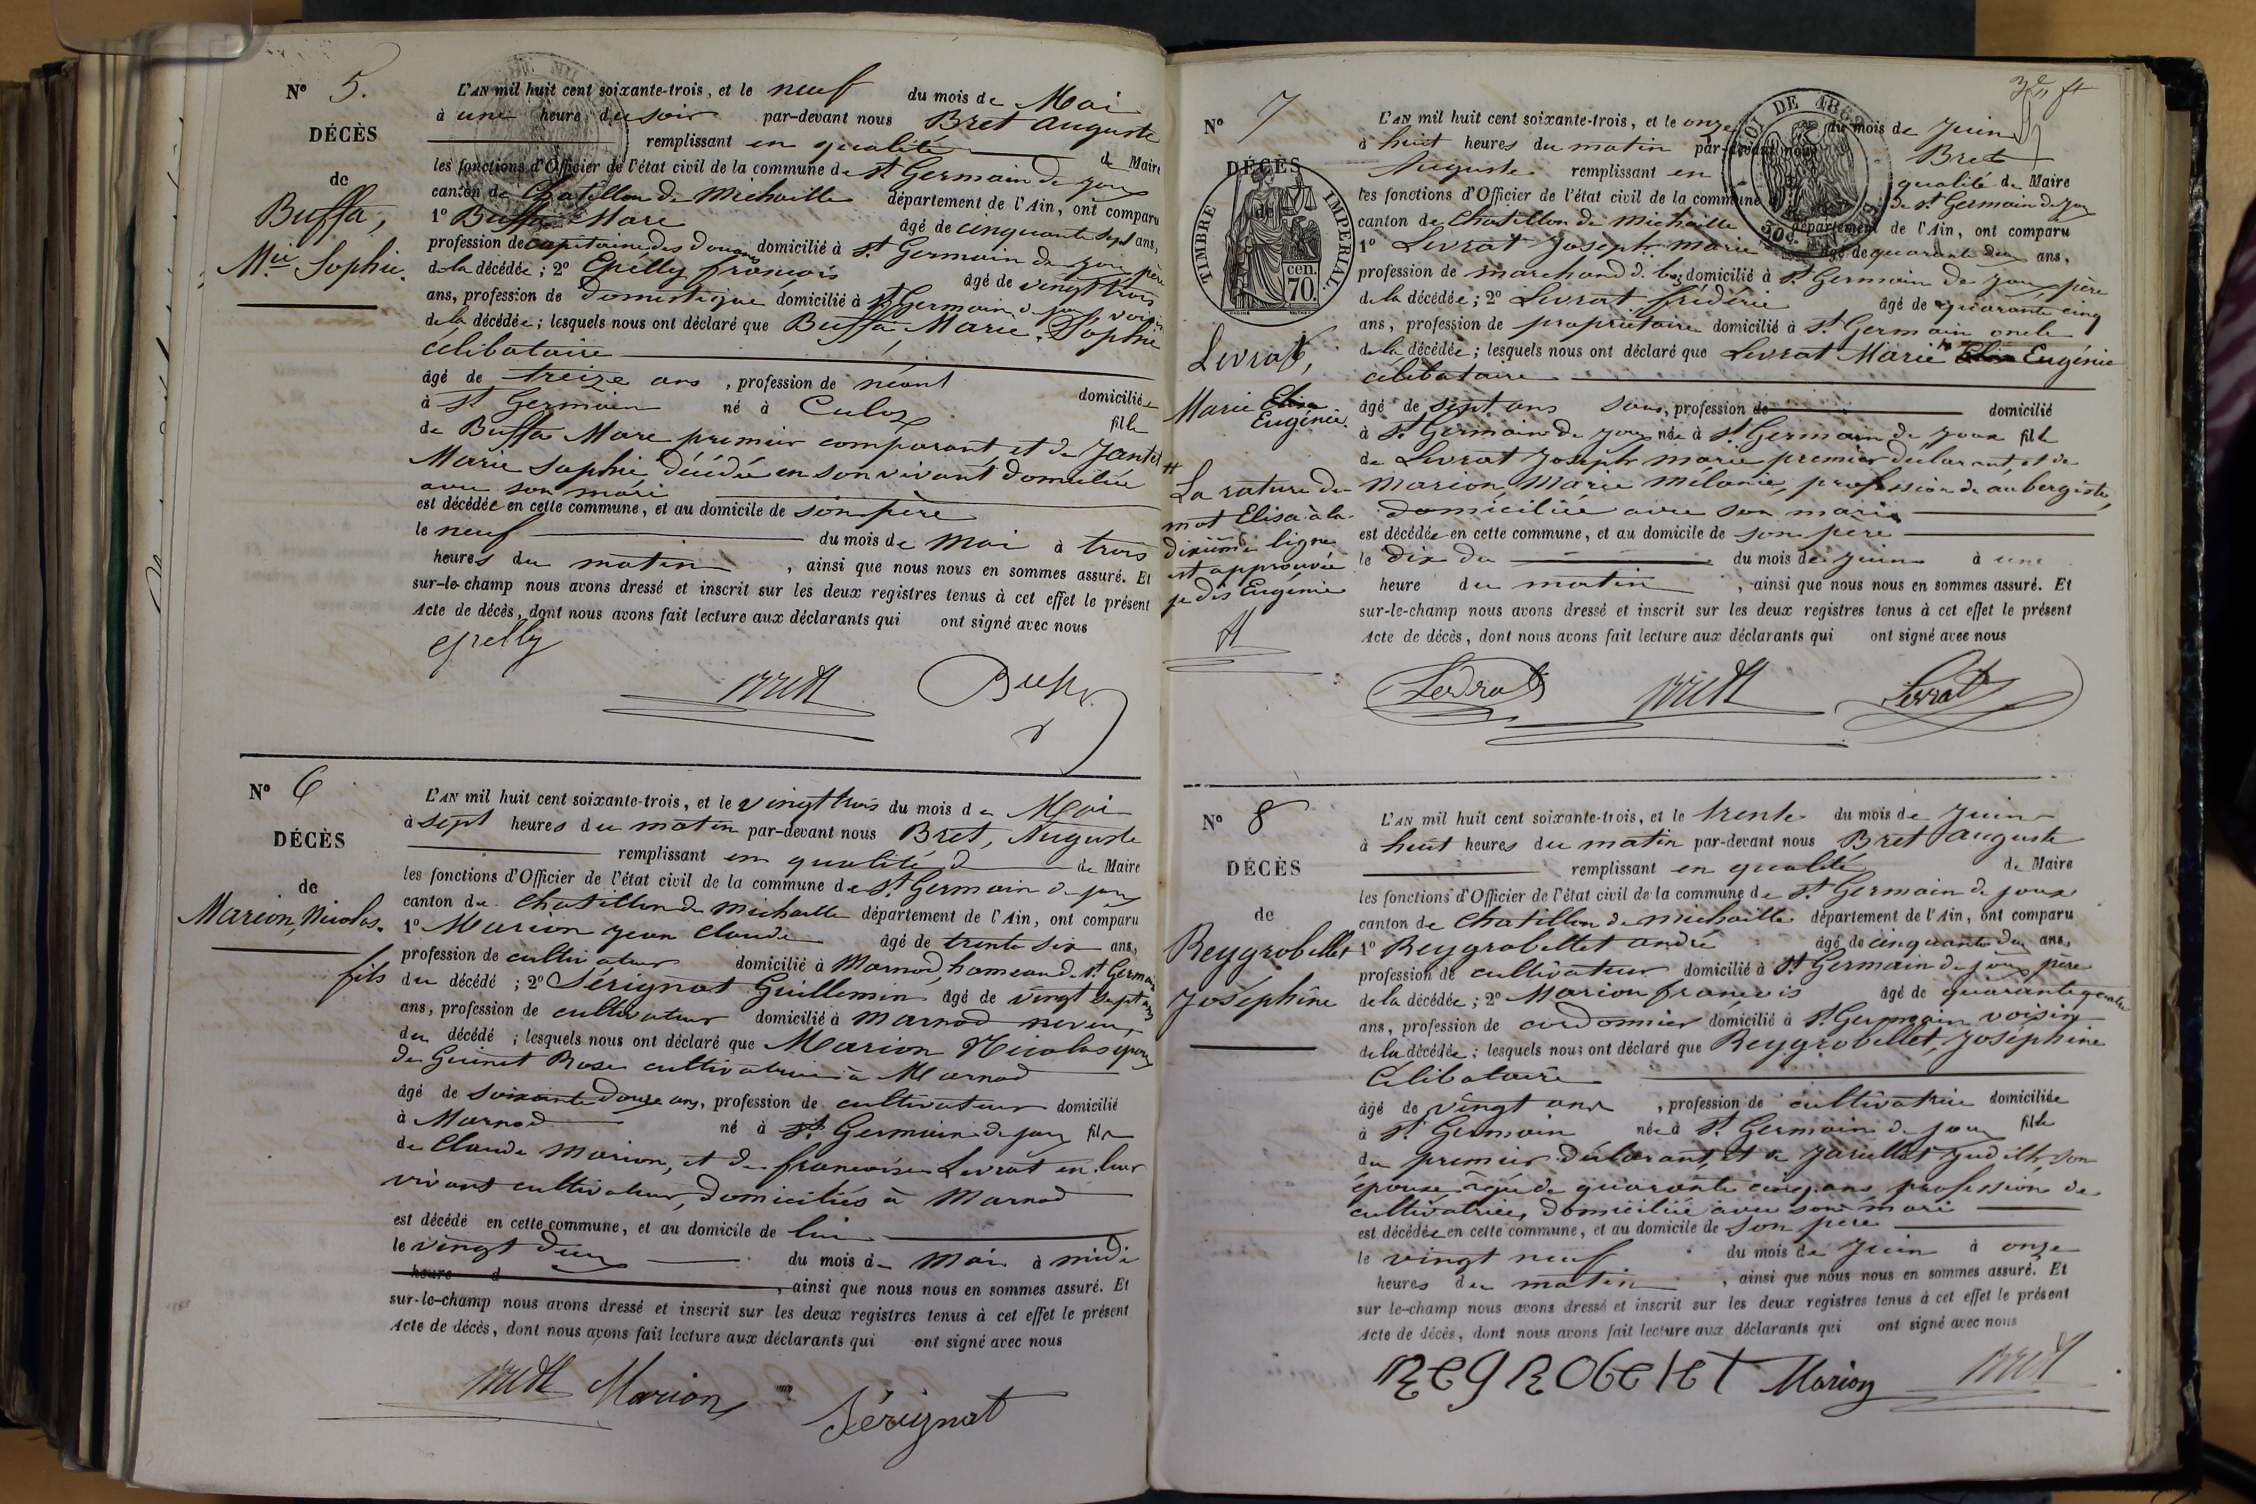 N° 5.
DÉCÈS
de
Buffa,
Mie Sophie.
L'AN mil huit cent soixante-trois, et le neuf du mois de Mai
à une heure du soir par-devant nous Bret Auguste
remplissant en qualité de Maire
les fonctions d'Officier de l'état civil de la commune de St Germain de joux
canton de Chatillon de Michaille département de l'Ain, ont comparu
1° Buffa Marc âgé de cinquante sept ans,
profession de capitaine des douanes domicilié à St Germain de joux père
de la décédée ; 2° Epilly françois âgé de vingt trois
ans, profession de domestique domicilié à St Germain d. joux voisin
de la décédée ; lesquels nous ont déclaré que Buffa, Marie, Sophie
célibataire
âgé de treize ans , profession de néant domiciliée
à St Germain né à Culoz fille
de Buffa Marc premier comparant et de Jantet
Marie Sophie décédée en son vivant domiciliée
avec son mari
est décédée en cette commune, et au domicile de son père
le neuf du mois de Mai à trois
heures du matin , ainsi que nous nous en sommes assuré. Et
sur-le-champ nous avons dressé et inscrit sur les deux registres tenus à cet effet le présent
Acte de décès, dont nous avons fait lecture aux déclarants qui ont signé avec nous
epelly
Bret Buffa
N° 6
DÉCÈS
de
Marion, Nicolas.
fils
L'AN mil huit cent soixante-trois, et le vingt trois du mois de Mai
à sept heures du matin par-devant nous Bret, Auguste
remplissant en qualité d de Maire
les fonctions d'Officier de l'état civil de la commune de St Germain de joux
canton de Chatillon de Michaille département de l'Ain, ont comparu
1° Marion jean Claude âgé de trente six ans,
profession de cultivateur domicilié à Marnod, hameau de St Germain
du décédé ; 2° Sérignat Guillemin âgé de vingt sept ans
ans, profession de cultivateur domicilié à Marnod neveu
du décédé ; lesquels nous ont déclaré que Marion Nicolas époux
de Guinet Rose cultivatrice à Marnod
âgé de soixante douze ans, profession de cultivateur domicilié
à Marnod né à St Germain de joux fils
de Claude Marion, et de françoise Levrat en leur
vivant cultivateur, domiciliés à Marnod
est décédé en cette commune, et au domicile de lui
le vingt deux du mois de Mai à midi
heure d , ainsi que nous nous en sommes assuré. Et
sur-le-champ nous avons dressé et inscrit sur les deux registres tenus à cet effet le présent
Acte de décès, dont nous avons fait lecture aux déclarants qui ont signé avec nous
Bret Marion
Sérignat
N° 7
DÉCÈS
de
TIMBRE IMPÉRIAL.
cen.
70.
Levrat,
Marie Elisa
Eugénie.
La rature du
mot Elisa à la
dixième ligne
est approuvée
je dis Eugénie
LOI DE 1862
L'AN mil huit cent soixante-trois, et le onze du mois de juin
à huit heures du matin par-devant nous Bret
Auguste remplissant en qualité de Maire
les fonctions d'Officier de l'état civil de la commune de St Germain de joux
canton de Chatillon de Michaille département de l'Ain, ont comparu
1° Levrat Joseph marie âgé de quarante deux ans,
profession de marchand d. bois domicilié à St Germain de joux père
de la décédée ; 2° Levrat frédéric âgé de quarante cinq
ans, profession de propriétaire domicilié à St Germain oncle
de la décédée ; lesquels nous ont déclaré que Levrat Marie Elisa Eugénie
célibataire
âgé de sept ans sans, profession de domicilié
à St Germain de joux née à St Germain de joux fille
de Levrat Joseph marie premier déclarant et de
Marion, Marie Mélanie, profession de aubergiste,
domiciliée avec son mari
est décédée en cette commune, et au domicile de son père
le dix du du mois de juin à une
heure du matin , ainsi que nous nous en sommes assuré. Et
sur-le-champ nous avons dressé et inscrit sur les deux registres tenus à cet effet le présent
Acte de décès, dont nous avons fait lecture aux déclarants qui ont signé avec nous
Levrat Bret Levrat
N° 8
DÉCÈS
de
Reygrobellet
Joséphine
L'AN mil huit cent soixante-trois, et le trente du mois de juin
à huit heures du matin par-devant nous Bret Auguste
remplissant en qualité de Maire
les fonctions d'Officier de l'état civil de la commune de St Germain de joux
canton de Chatillon de michaille département de l'Ain, ont comparu
1° Reygrobellet André âgé de cinquante deux ans,
profession de cultivateur domicilié à St Germain de joux père
de la décédée ; 2° Marion françois âgé de quarante quatre
ans, profession de cordonnier domicilié à St Germain voisin
de la décédée ; lesquels nous ont déclaré que Reygrobellet, Joséphine
Célibataire
âgé de vingt ans , profession de cultivatrice domiciliée
à St Germain née à St Germain de joux fille
du premier déclarant, et de Judith, son
épouse âgée de quarante cinq ans profession de
cultivatrice, domiciliée avec son mari
est décédée en cette commune, et au domicile de son père
le vingt neuf du mois de juin à onze
heures du matin , ainsi que nous nous en sommes assuré. Et
sur le-champ nous avons dressé et inscrit sur les deux registres tenus à cet effet le présent
Acte de décès, dont nous avons fait lecture aux déclarants qui ont signé avec nous
Regrobelet Marion Bret